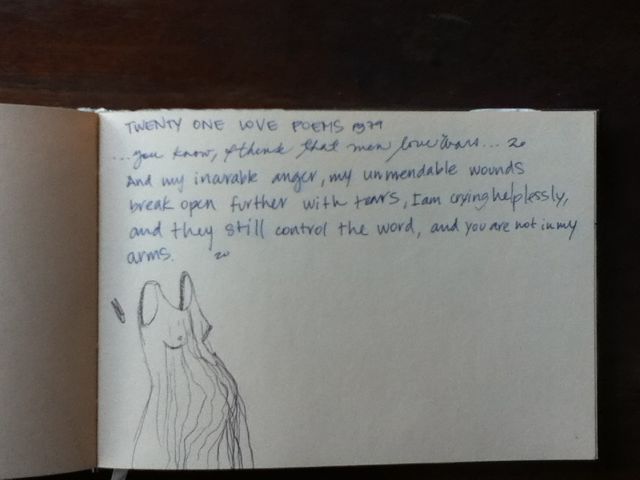 TWENTY ONE LOVE POEMS 1979
...you know, I think that men love wars... 20
And my incurable anger, my unmendable wounds
break open further with tears, I am crying helplessly,
and they still control the word, and you are not in my
arms. 20